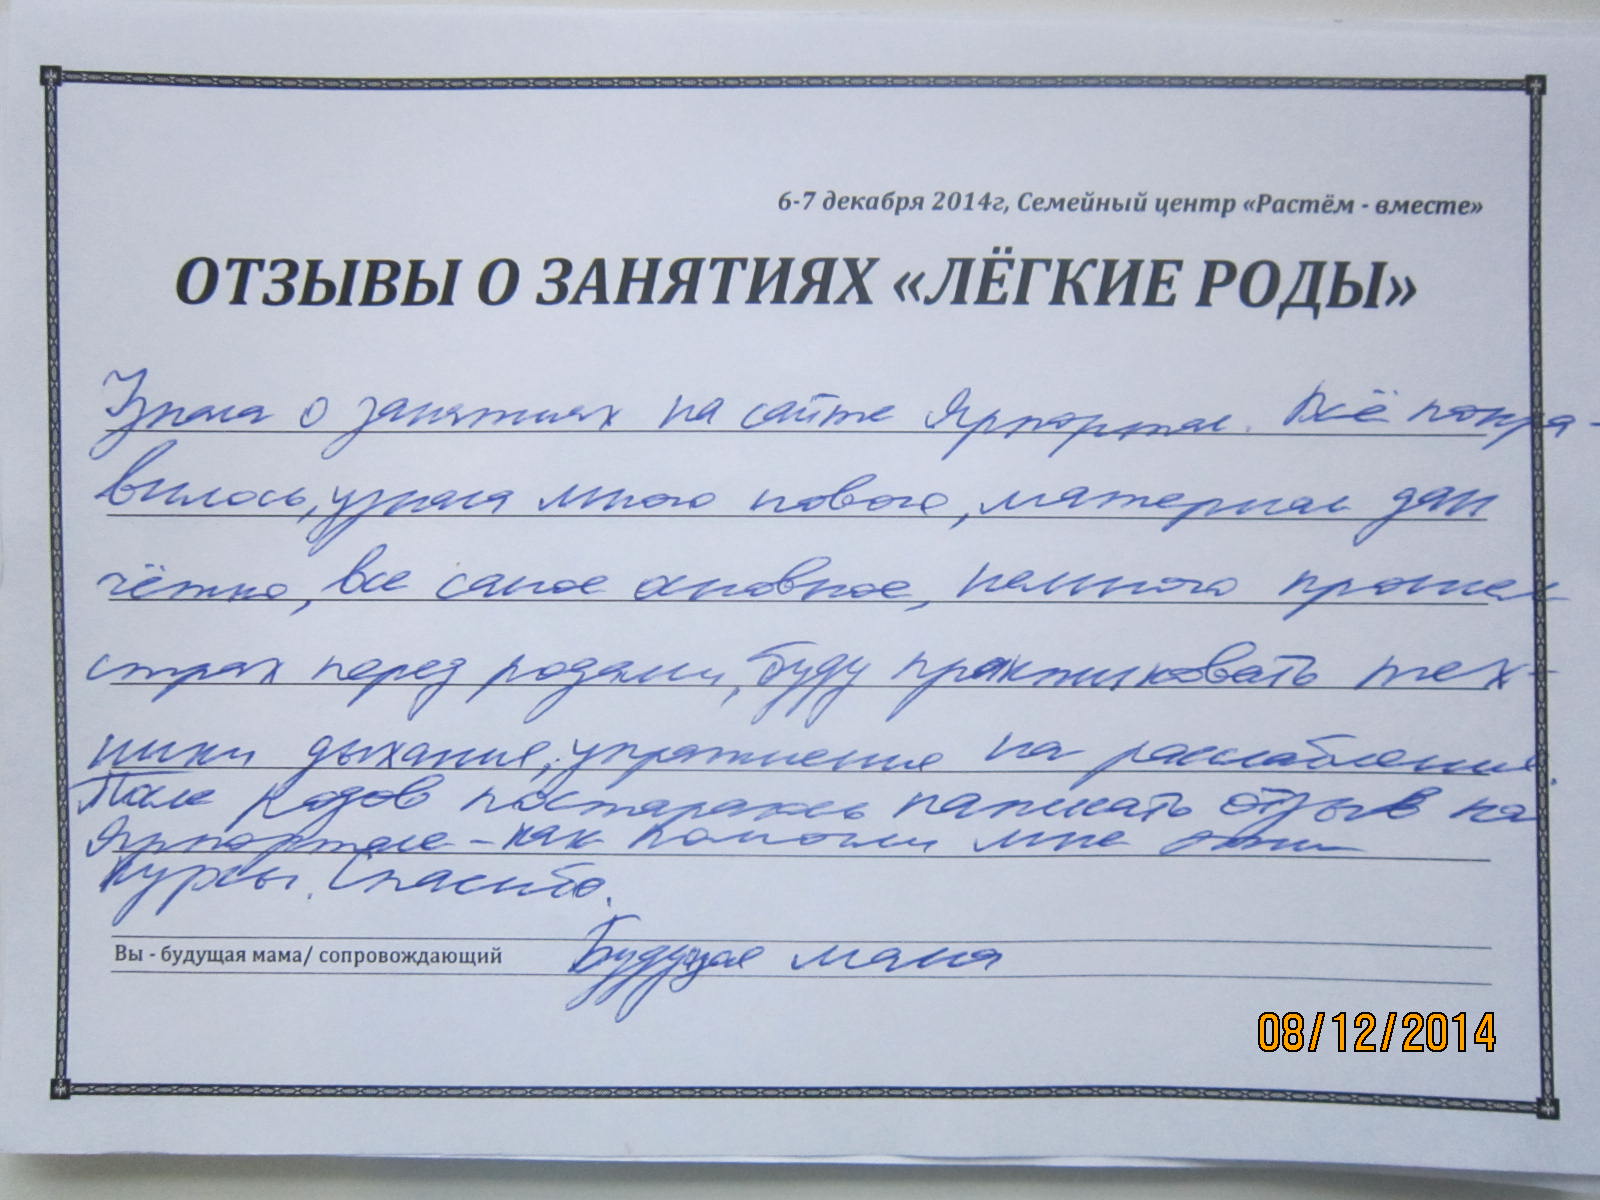 6-7 декабря 2014г, Семейный центр «Растём - вместе»
ОТЗЫВЫ О ЗАНЯТИЯХ «ЛЁГКИЕ РОДЫ»
Узнала о занятиях на сайте Ярпортал. Всё понра-
вилось, узнала много нового, материал дан
чётко, все самое основное, немного прошел
страх перед родами, буду практиковать тех-
ники дыхания, упражнения на расслабление.
После родов постараюсь написать отзыв на
Ярпортале - как помогли мне эти
курсы. Спасибо.
Вы - будущая мама/ сопровождающий Будущая мама
08/12/2014